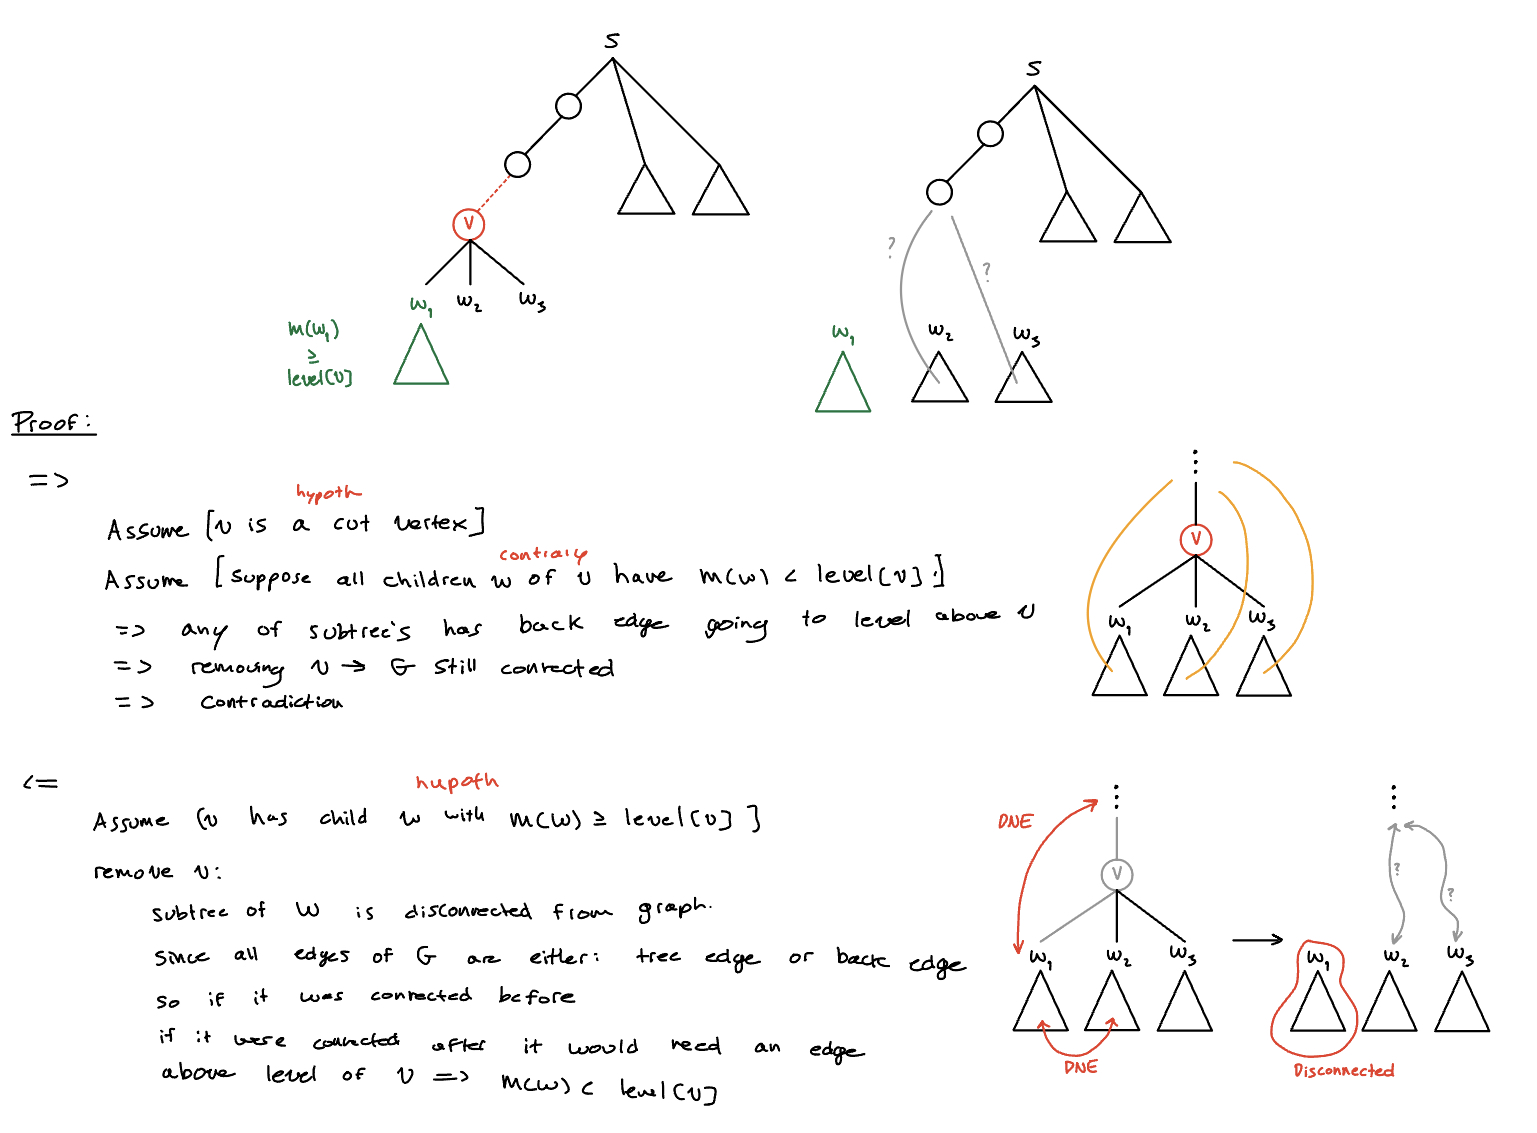 S
S
V
?
?
w₁ w₂ w₃
m(w₁)
≥
level[v]
w₁ w₂ w₃
Proof:
=>
hypoth
Assume [v is a cut vertex]
contrary
Assume [suppose all children w of v have m(w) < level[v].]
=> any of subtree's has back edge going to level above v
=> removing v → G still connected
=> contradiction
V
w₁ w₂ w₃
<=
hypoth
Assume [v has child w with m(w) ≥ level[v]]
remove v:
subtree of w is disconnected from graph.
since all edges of G are either: tree edge or back edge
so if it was connected before
if it were connected after it would need an edge
above level of v => m(w) < level[v]
DNE
V
w₁ w₂ w₃
DNE
?
?
w₁ w₂ w₃
Disconnected